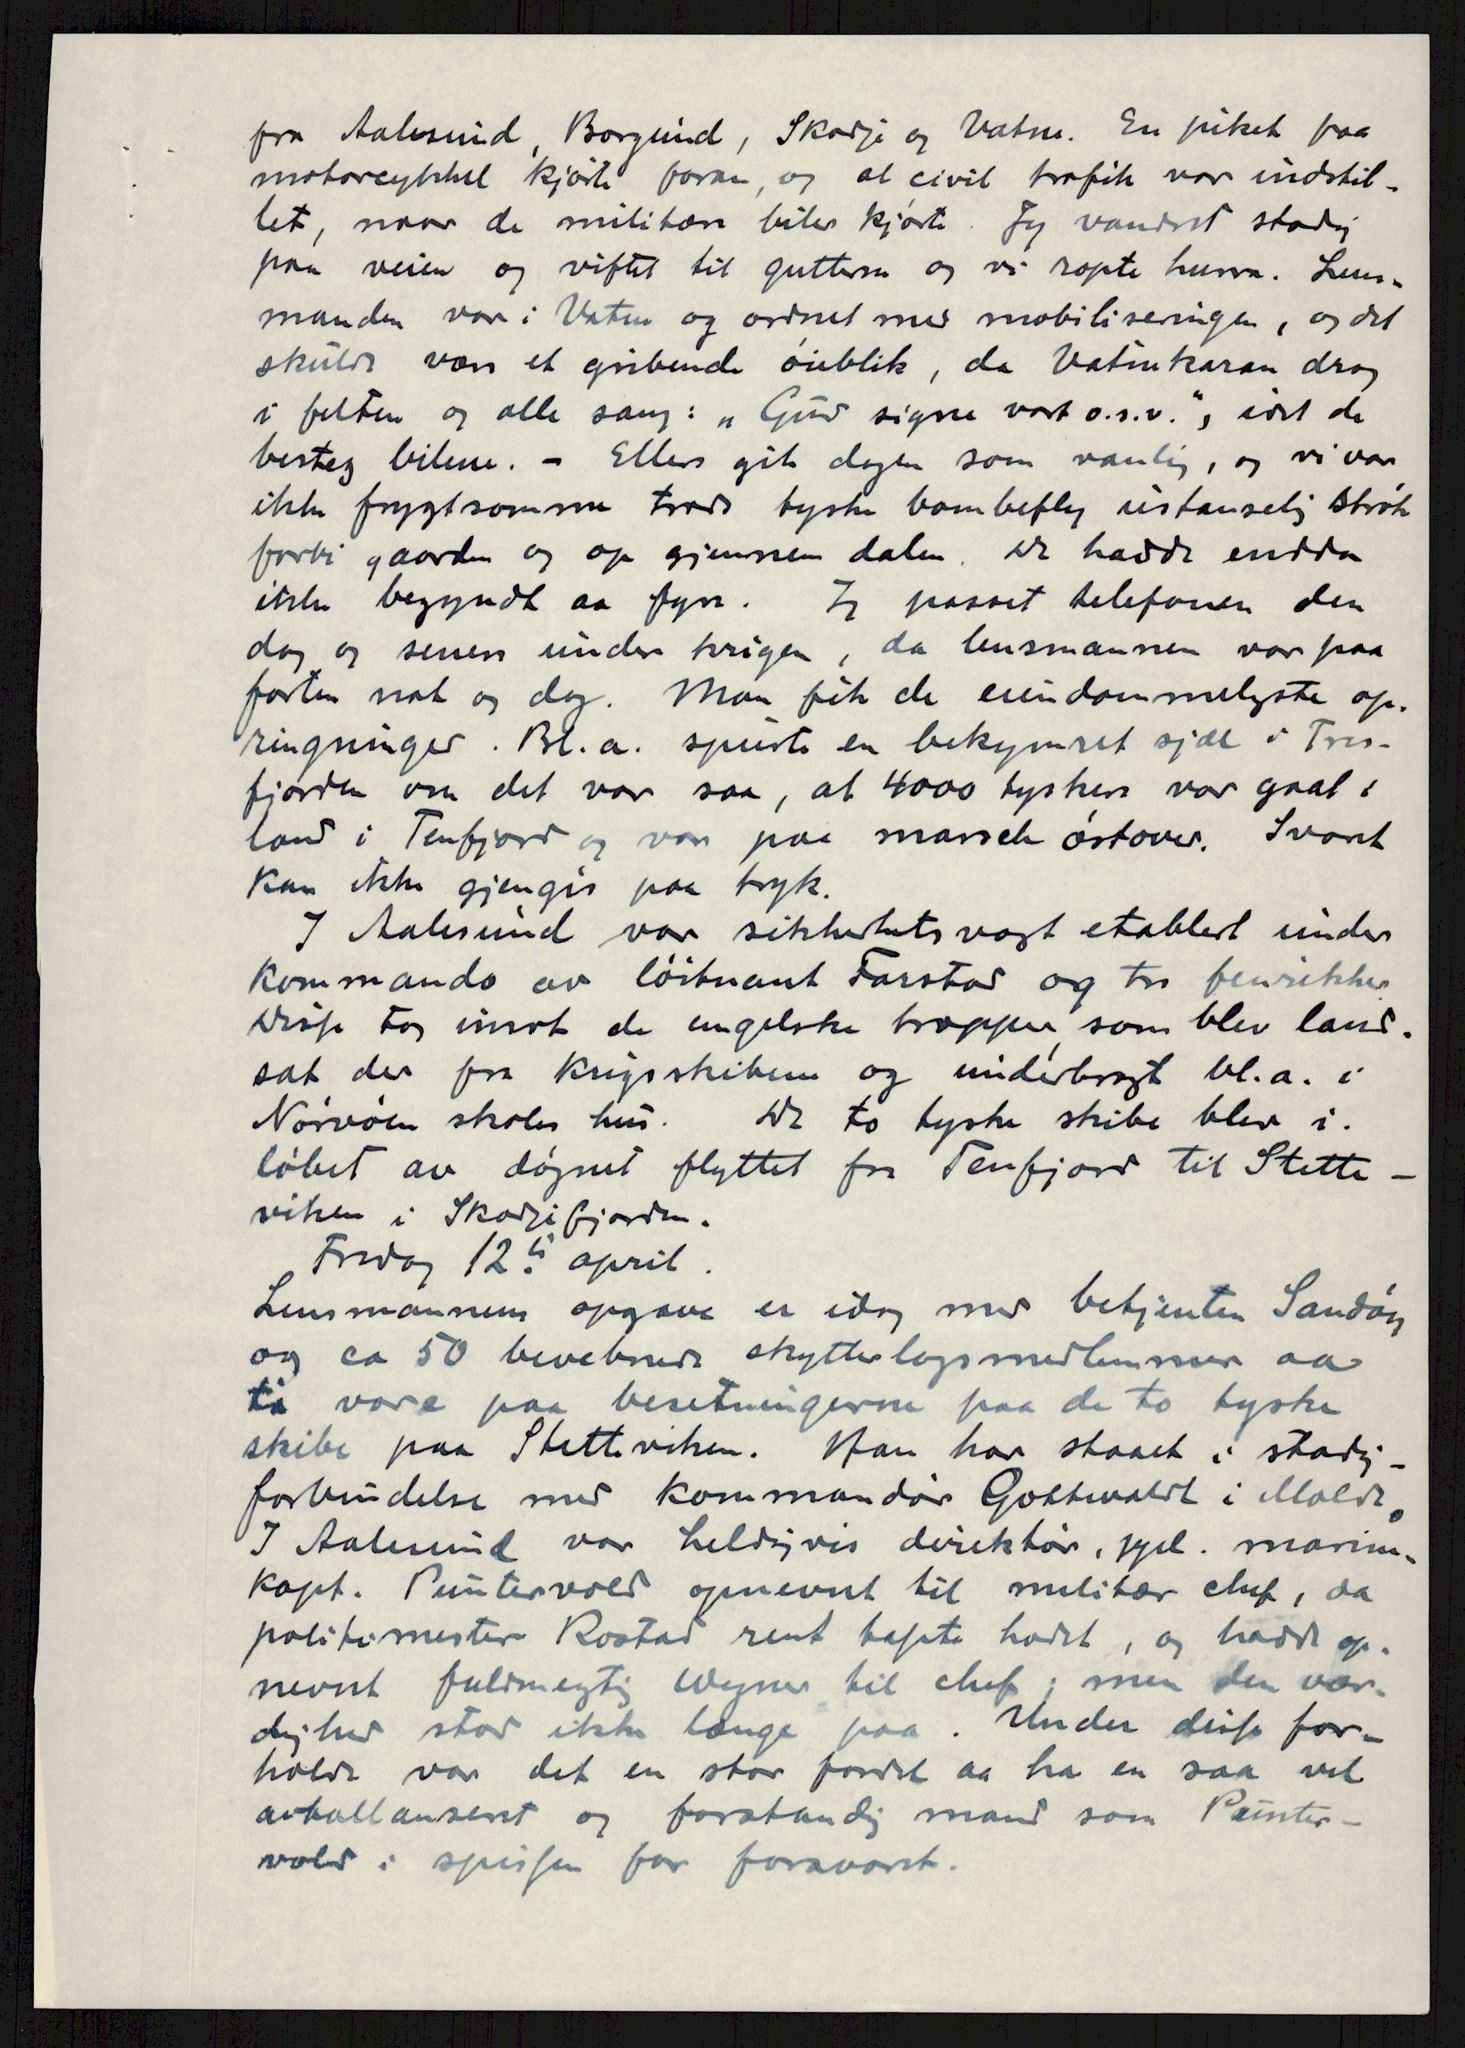 fra Aalesund, Borgund, Skodje og Vatne. En piket paa
motorcykkel kjørte foran, og al civil trafik var indstil-
let, naar de militære biler kjørte. Jeg vandret stadig
paa veien og viftet til gutterne og vi ropte hurra. Lens-
manden var i Vatne og ordnet med mobiliseringen, og det
skulde være et gribende øieblik, da Vatnekaran drog
i felten og alle sang: „Gud signe vort o.s.v.", idet de
besteg bilene. - Ellers gik dagen som vanlig, og vi var
ikke frygtsomme trods tyske bombefly ustanselig strøk
forbi gaarden og op gjennem dalen. De hadde endda
ikke begyndt aa fyre. Jeg passet telefonen den
dag og senere under krigen, da lensmannen var paa
farten nat og dag. Man fik de eiendommeligste op-
ringninger. Bl.a. spurte en bekymret sjæl i Tres-
fjorden om det var saa, at 4000 tyskere var gaat i
land i Tenfjord og var paa marsch østover. Svaret
kan ikke gjengis paa tryk.
I Aalesund var sikkerhetsvagt etablert under
kommando av løitnant Farstad og tre fenrikker
Disse tog imot de engelske tropper som blev land-
sat der fra krigsskibene og underbragt bl.a. i
Nørvøen skoles hus. De to tyske skibe blev i
løbet av døgnet flyttet fra Tenfjord til Stette-
viken i Skodjefjorden.
Fredag 12. april.
Lensmannens opgave er idag med betjenten Sandøy
og ca 50 bevebnede skytterlagsmedlemmer aa
ta vare paa besetningerne paa de to tyske
skibe paa Stetteviken. Han har staaet i stadig
forbindelse med kommandør Gottwaldt i Molde.
I Aalesund var heldigvis direktør, marine-
kapt. Puntervold opnevnt til militær chef, da
politimester Rostad rent tapte hodet, og hadde op-
nevnt fuldmegtig Wegner til chef; men den vær-
dighed stod ikke længe paa. Under disse for-
holde var det en stor fordel aa ha en saa vel
avballanseret og forstandig mand som Punter-
vold i spissen for forsvaret.